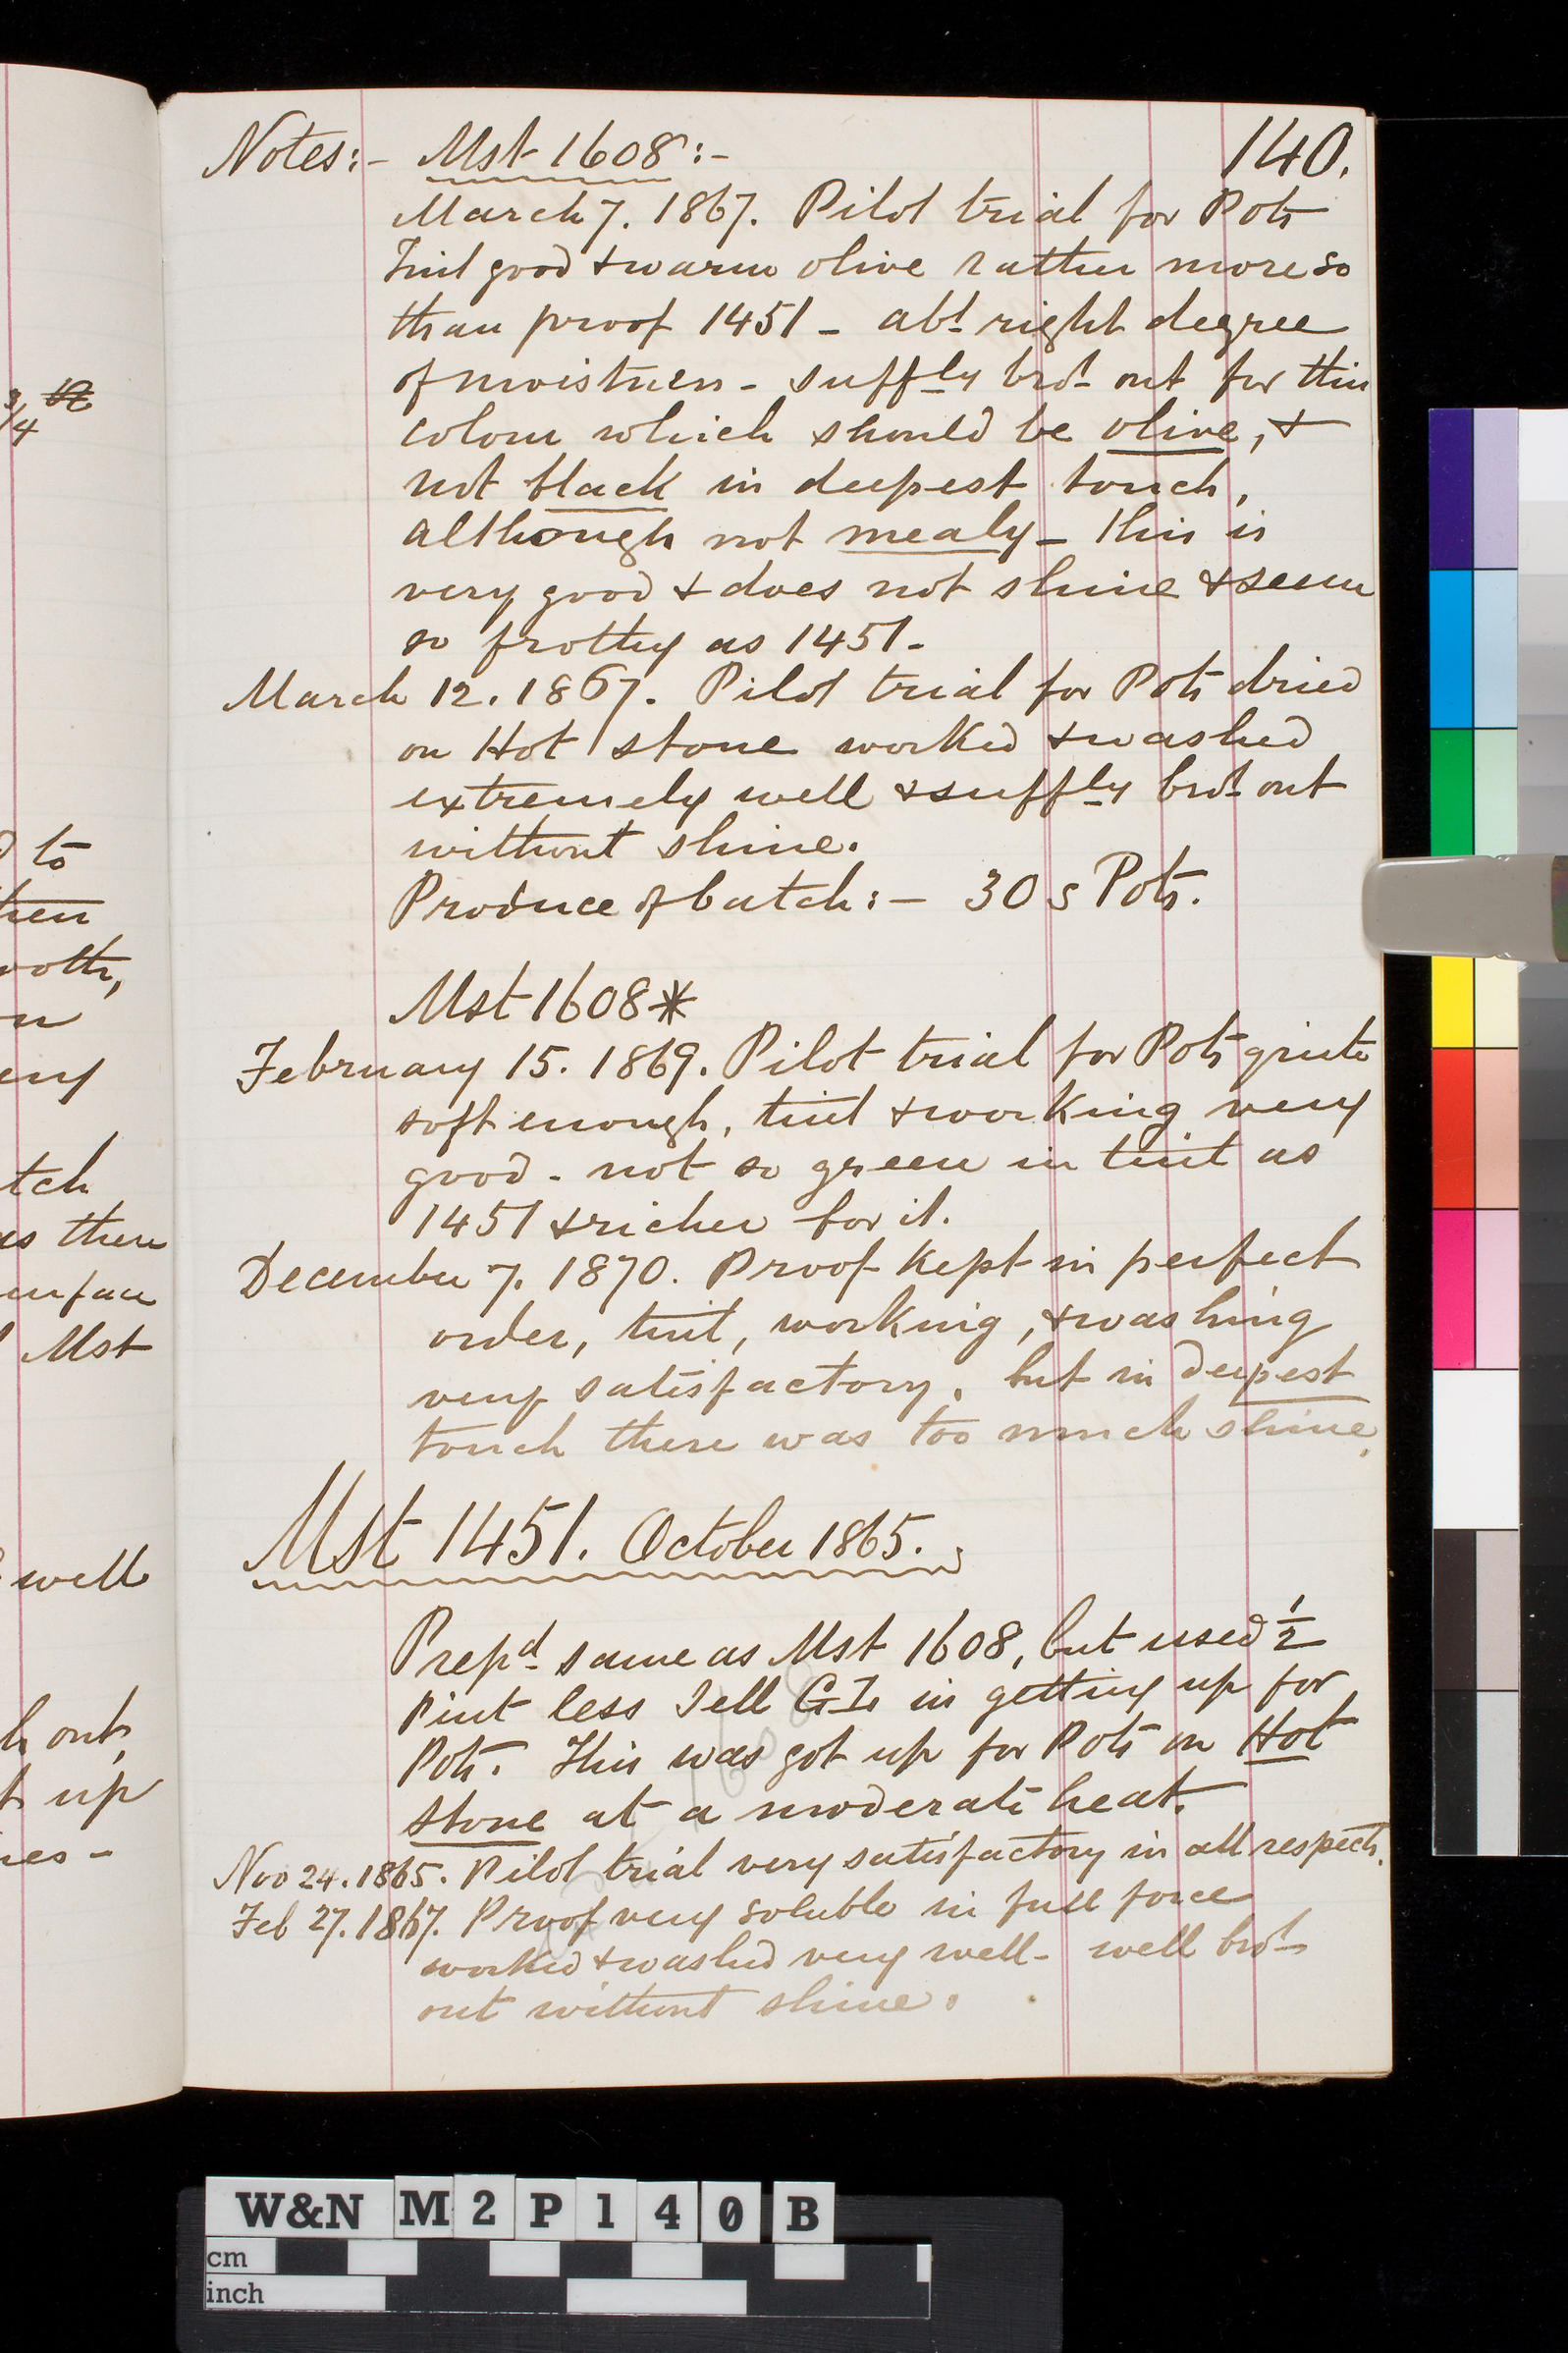 Notes:- Mst 1608:- 140.
March 7. 1867. Pilot trial for Pots
Tint good & warm olive rather more so
than proof 1451 - abt right degree
of moistness - suffly brot out for this
colour which should be olive, &
not black in deepest touch,
although not mealy - this is
very good & does not shine & seem
so frothy as 1451-
March 12. 1867. Pilot trial for Pots dried
on Hot stone worked & washed
extremely well & suffly brot out
without shine.
Produce of batch:- 30 s Pots.
Mst 1608*
February 15. 1869. Pilot trial for Pots quite
soft enough, tint & working very
good - not so green in tint as
1451 & richer for it.
December 7. 1870. Proof kept in perfect
order, tint, working, & washing
very satisfactory, but in deepest
touch there was too much shine.
Mst 1451. October 1865.
Prepd same as Mst 1608, but used 1/2
Pint less Jell G in getting up for
Pots. This was got up for Pots on Hot
stone at a moderate heat.
Nov 24. 1865. Pilot trial very satisfactory in all respects.
Feb 27. 1867. Proof very soluble in full force
worked & washed very well - well brot
out without shine.
3/4
to
tch
as there
Mst
well
out
up
W&N M2P140B
cm
inch